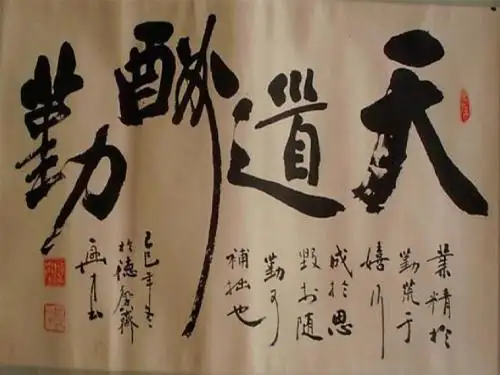 天道酬勤
業精於
勤荒于
嬉行
成於思
毁於随
勤可
補拙也
乙巳年冬
於德馨齋